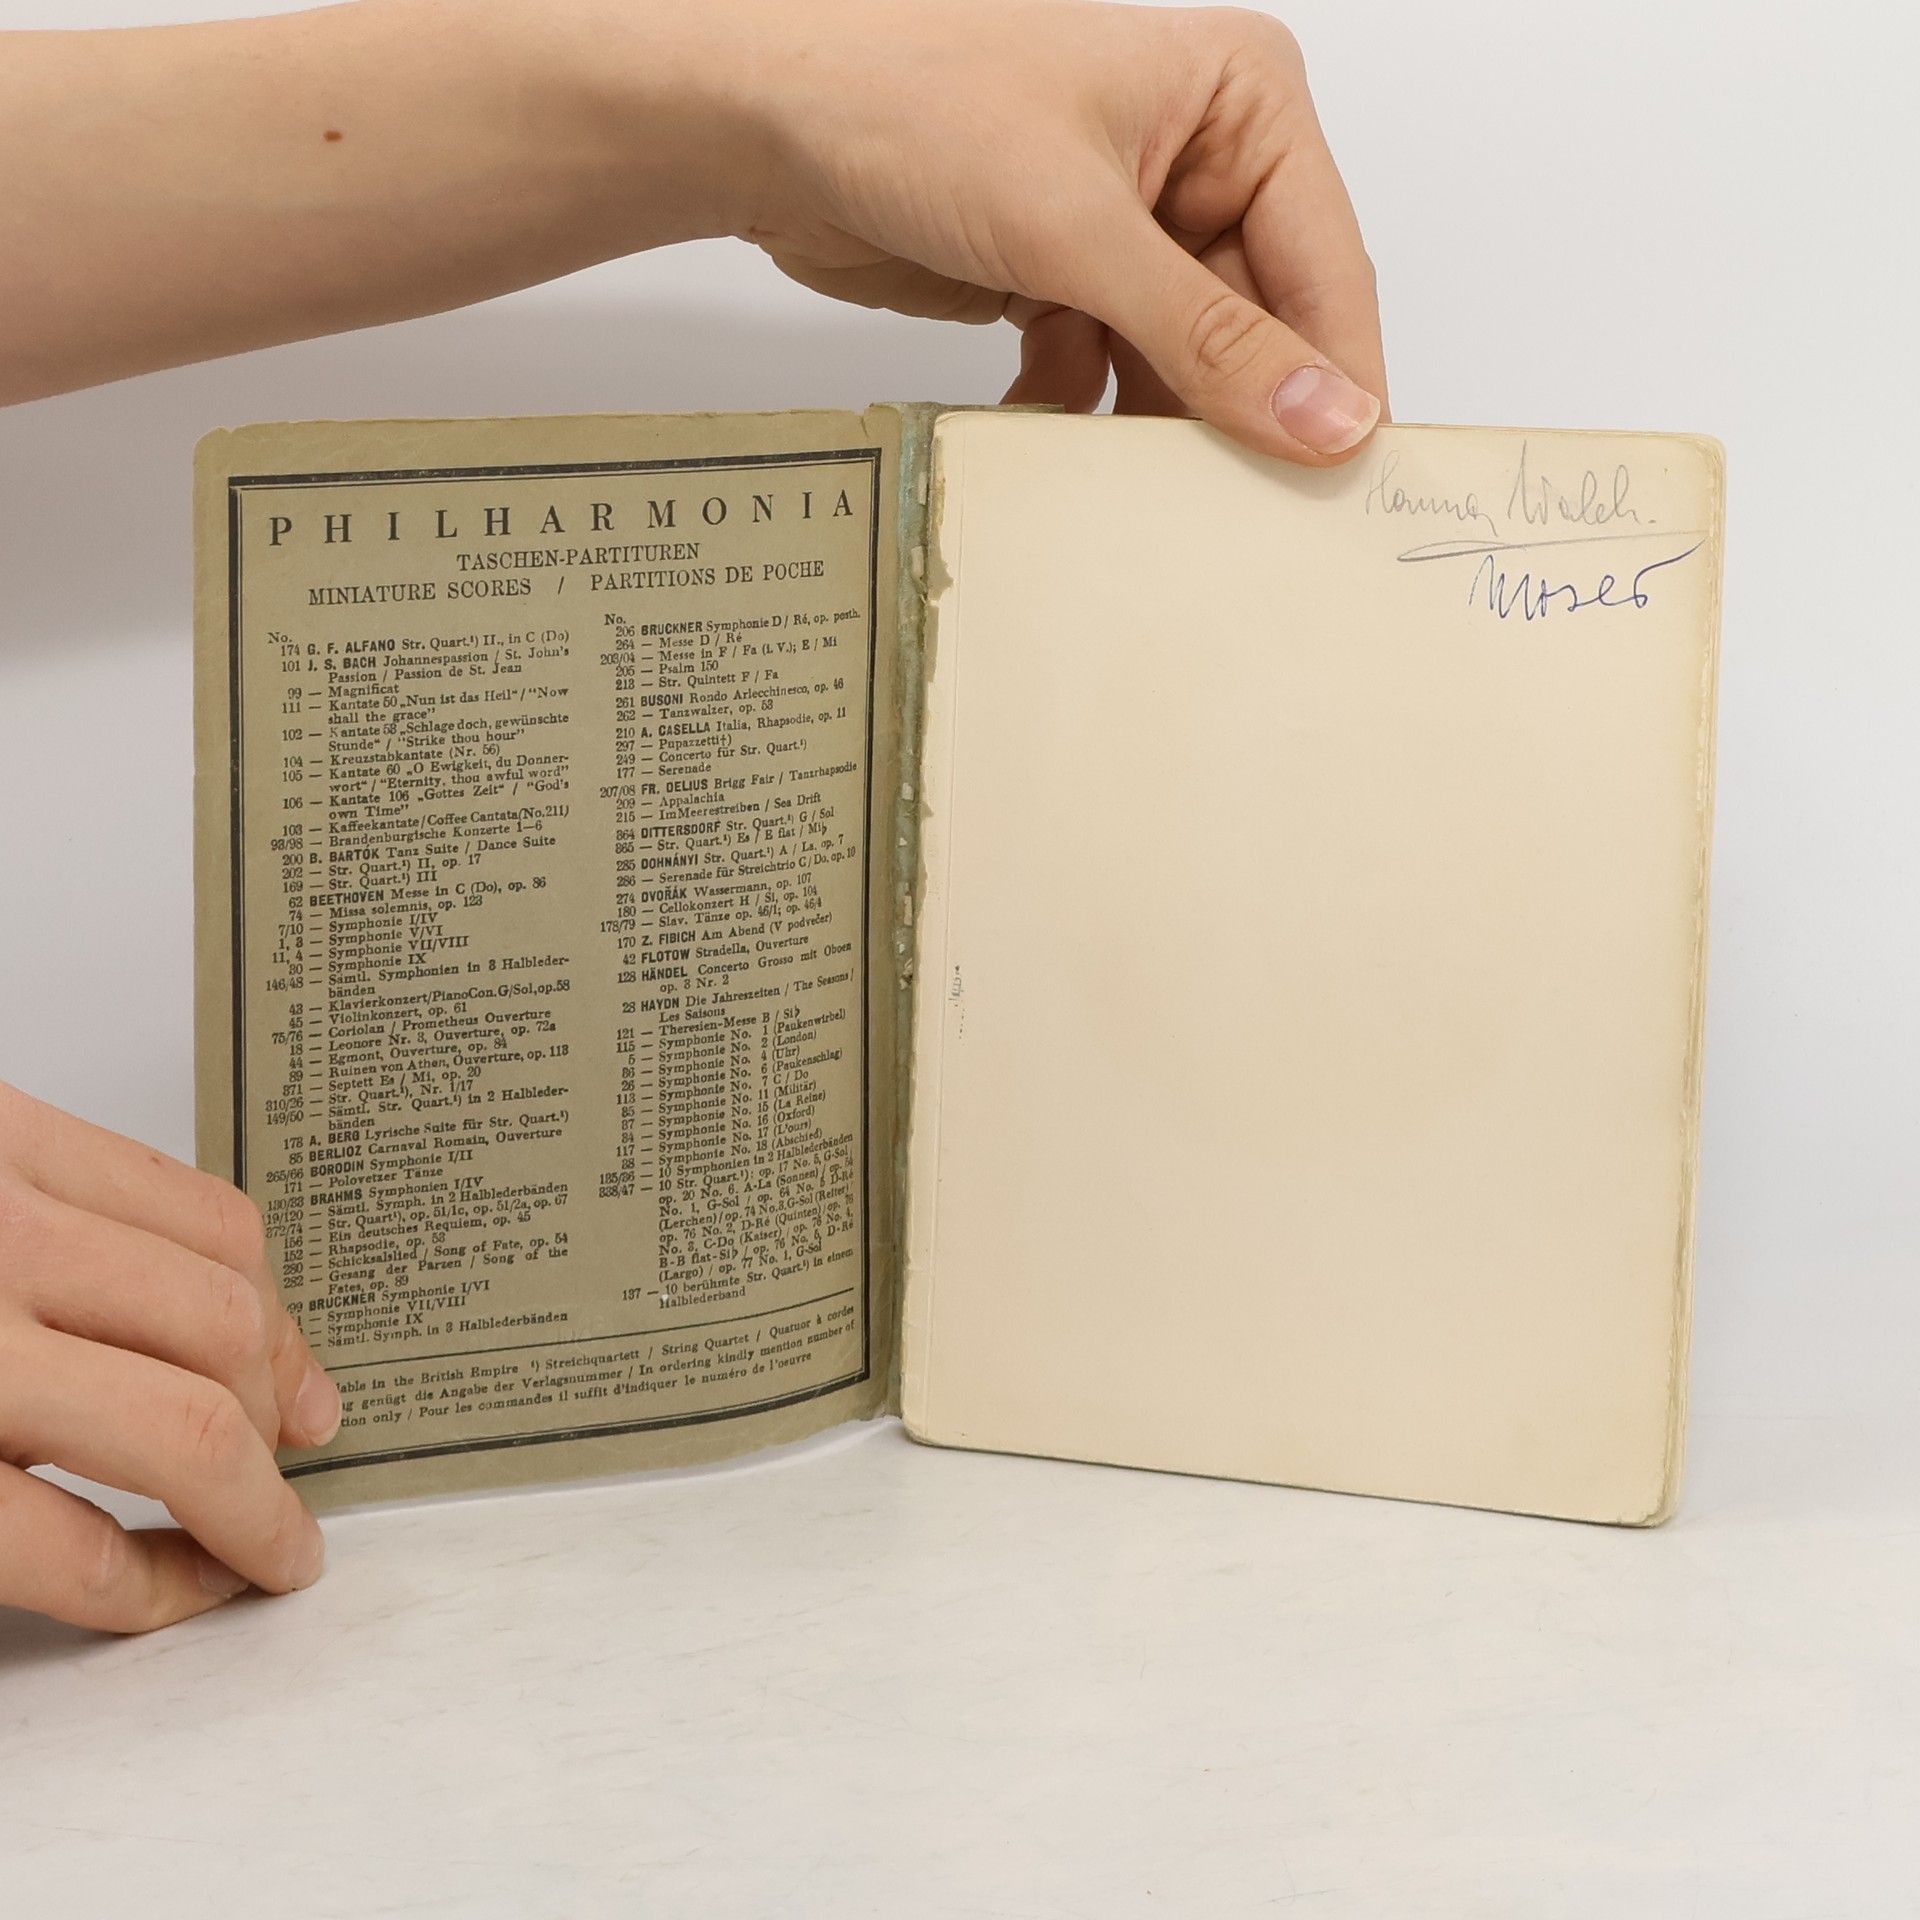 PHILHARMONIA
TASCHEN-PARTITUREN
MINIATURE SCORES / PARTITIONS DE POCHE
No.
174 G. F. ALFANO Str. Quart.¹) II., in C (Do)
101 J. S. BACH Johannespassion / St. John's
Passion / Passion de St. Jean
99 — Magnificat
111 — Kantate 50 „Nun ist das Heil“ / “Now
shall the grace”
102 — Kantate 53 „Schlage doch, gewünschte
Stunde“ / “Strike thou hour”
104 — Kreuzstabkantate (Nr. 56)
105 — Kantate 60 „O Ewigkeit, du Donner-
wort“ / “Eternity, thou awful word”
106 — Kantate 106 „Gottes Zeit“ / “God's
own Time”
103 — Kaffeekantate / Coffee Cantata (No. 211)
93/98 — Brandenburgische Konzerte 1—6
200 B. BARTÓK Tanz Suite / Dance Suite
202 — Str. Quart.¹) II, op. 17
169 — Str. Quart.¹) III
62 BEETHOVEN Messe in C (Do), op. 86
74 — Missa solemnis, op. 123
7/10 — Symphonie I/IV
1, 3 — Symphonie V/VI
11, 4 — Symphonie VII/VIII
30 — Symphonie IX
146/48 — Sämtl. Symphonien in 3 Halbleder-
bänden
43 — Klavierkonzert/Piano Con. G/Sol, op. 58
45 — Violinkonzert, op. 61
75/76 — Coriolan / Prometheus Ouverture
18 — Leonore Nr. 3, Ouverture, op. 72a
44 — Egmont, Ouverture, op. 84
89 — Ruinen von Athen, Ouverture, op. 113
371 — Septett Es / Mi, op. 20
310/26 — Str. Quart.¹), Nr. 1/17
149/50 — Sämtl. Str. Quart.¹) in 2 Halbleder-
bänden
178 A. BERG Lyrische Suite für Str. Quart.¹)
85 BERLIOZ Carnaval Romain, Ouverture
265/66 BORODIN Symphonie I/II
171 — Polovetzer Tänze
130/33 BRAHMS Symphonien I/IV
119/120 — Sämtl. Symph. in 2 Halblederbänden
372/74 — Str. Quart¹), op. 51/1c, op. 51/2a, op. 67
156 — Ein deutsches Requiem, op. 45
152 — Rhapsodie, op. 53
280 — Schicksalslied / Song of Fate, op. 54
282 — Gesang der Parzen / Song of the
Fates, op. 89
/99 BRUCKNER Symphonie I/VI
1 — Symphonie VII/VIII
— Symphonie IX
— Sämtl. Symph. in 3 Halblederbänden
No.
206 BRUCKNER Symphonie D / Ré, op. posth.
264 — Messe D / Ré
203/04 — Messe in F / Fa (i. V.); E / Mi
205 — Psalm 150
213 — Str. Quintett F / Fa
261 BUSONI Rondo Arlecchinesco, op. 46
262 — Tanzwalzer, op. 53
210 A. CASELLA Italia, Rhapsodie, op. 11
297 — Pupazzetti†)
249 — Concerto für Str. Quart.¹)
177 — Serenade
207/08 FR. DELIUS Brigg Fair / Tanzrhapsodie
209 — Appalachia
215 — Im Meerestreiben / Sea Drift
364 DITTERSDORF Str. Quart.¹) G / Sol
365 — Str. Quart.¹) Es / E flat / Mi♭
285 DOHNÁNYI Str. Quart.¹) A / La, op. 7
286 — Serenade für Streichtrio C / Do, op. 10
274 DVOŘÁK Wassermann, op. 107
180 — Cellokonzert H / Si, op. 104
178/79 — Slav. Tänze op. 46/1; op. 46/4
170 Z. FIBICH Am Abend (V podvečer)
42 FLOTOW Stradella, Ouverture
128 HÄNDEL Concerto Grosso mit Oboen
op. 3 Nr. 2
28 HAYDN Die Jahreszeiten / The Seasons /
Les Saisons
121 — Theresien-Messe B / Si♭
115 — Symphonie No. 1 (Paukenwirbel)
5 — Symphonie No. 2 (London)
86 — Symphonie No. 4 (Uhr)
26 — Symphonie No. 6 (Paukenschlag)
113 — Symphonie No. 7 C / Do
85 — Symphonie No. 11 (Militär)
87 — Symphonie No. 15 (La Reine)
84 — Symphonie No. 16 (Oxford)
117 — Symphonie No. 17 (L'ours)
88 — Symphonie No. 18 (Abschied)
135/36 — 10 Symphonien in 2 Halblederbänden
338/47 — 10 Str. Quart.¹): op. 17 No. 5, G-Sol /
op. 20 No. 6. A-La (Sonnen) / op. 54
No. 1, G-Sol / op. 64 No. 5 D-Ré
(Lerchen) / op. 74 No. 3, G-Sol (Reiter) /
op. 76 No. 2, D-Ré (Quinten) / op. 76
No. 3, C-Do (Kaiser) / op. 76 No. 4,
B-B flat-Si♭ / op. 76 No. 5, D-Ré
(Largo) / op. 77 No. 1, G-Sol
137 — 10 berühmte Str. Quart.¹) in einem
Halblederband
lable in the British Empire ¹) Streichquartett / String Quartet / Quatuor à cordes
ng genügt die Angabe der Verlagsnummer / In ordering kindly mention number of
tion only / Pour les commandes il suffit d'indiquer le numéro de l'oeuvre
Hanna Walch.
Moser